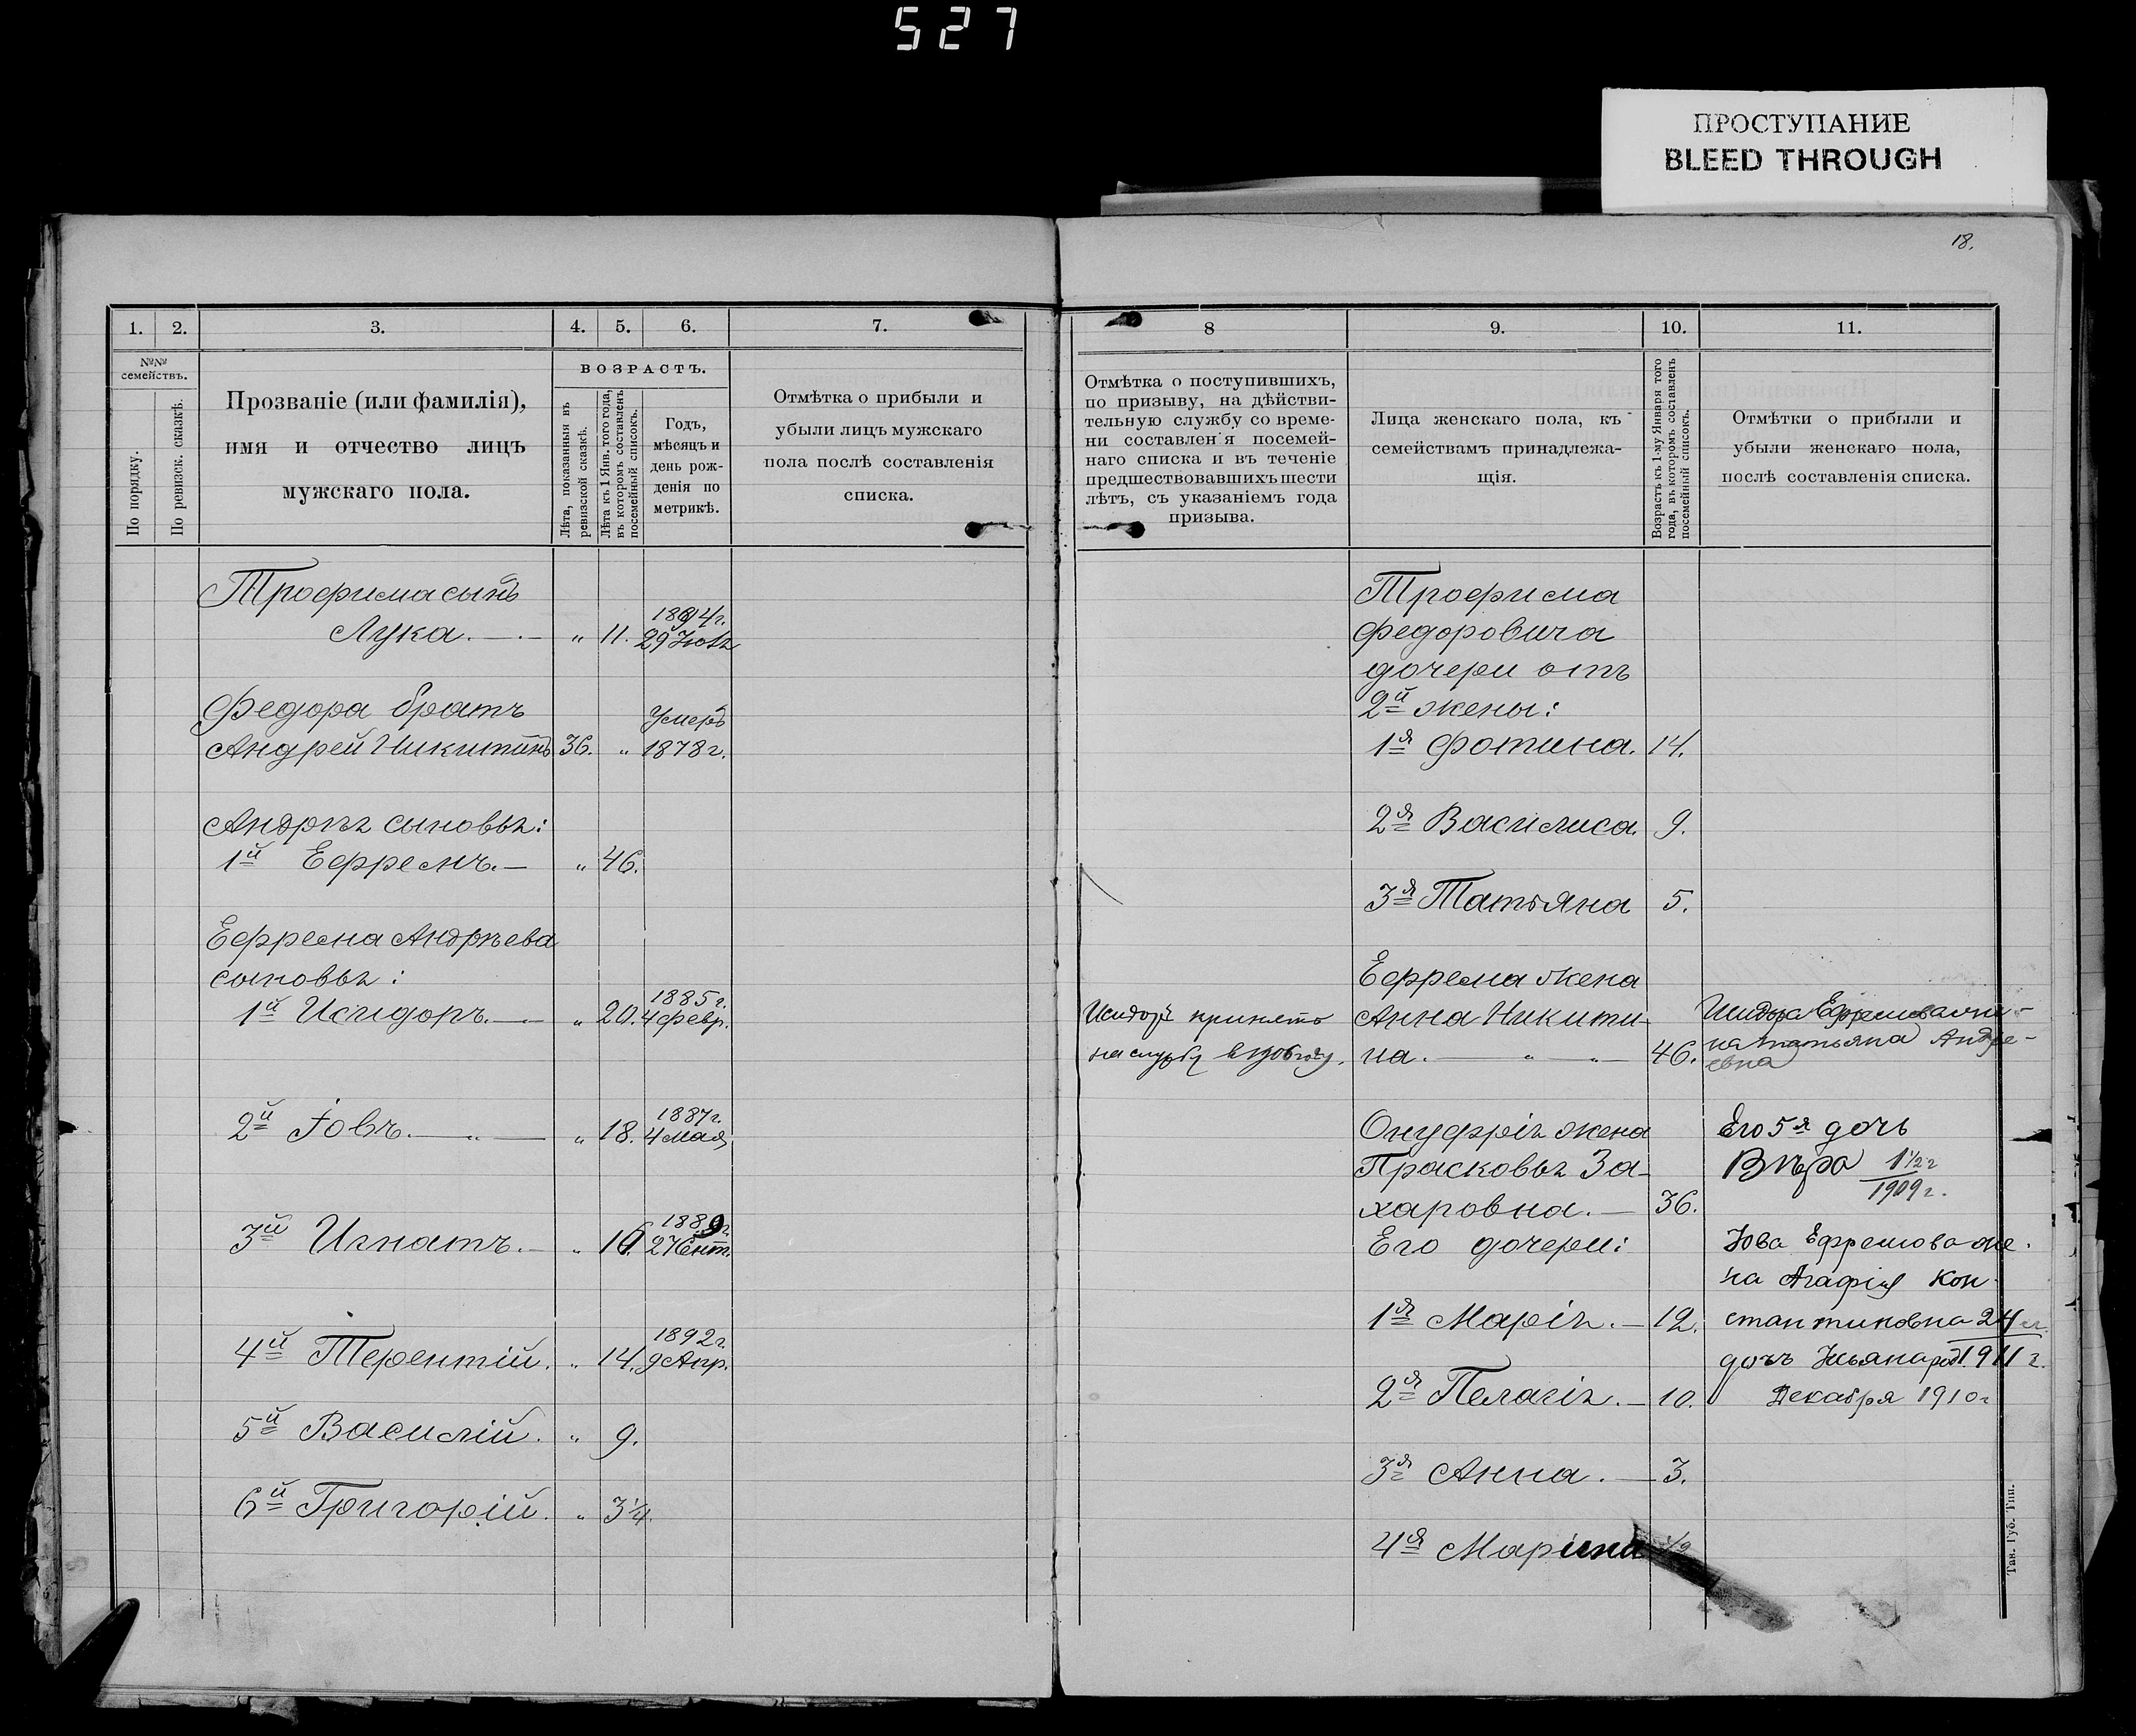 527
ПРОСТУПАНИЕ
BLEED THROUGH
18.
1.
2.
3.
4.
5.
6.
7.
№№ семействъ.
По порядку.
По ревизск. сказкѣ.
Прозваніе (или фамилія),
имя и отчество лицъ
мужскаго пола.
ВОЗРАСТЪ.
Лѣта, показанныя въ
ревизской сказкѣ.
Лѣта къ 1 Янв. того года,
въ которомъ составленъ
посемейный списокъ.
Годъ,
мѣсяцъ и
день рож-
денія по
метрикѣ.
Отмѣтка о прибыли и
убыли лицъ мужскаго
пола послѣ составленія
списка.
Трофима сынъ
1894г.
Лука. — „ 11. 29 Іюля
Федора братъ
Умеръ
Андрей Никитинъ 36. „ 1878 г.
Андрея сыновья:
1й Ефремъ. — „ 46.
Ефрема Андрѣева
сыновья:
1885 г.
1й Исидоръ. — „ 20. 4 Февр.
1887 г.
2й Іовъ. — „ — „ 18. 4 мая
1889 г.
3й Игнатъ. — „ 16. Сент.
1892 г.
4й Терентій. „ 14. 9 Апр.
5й Василій. „ 9.
6й Григорій. „ 3¼.
8
9.
10.
11.
Отмѣтка о поступившихъ,
по призыву, на дѣйстви-
тельную службу со време-
ни составленія посемей-
наго списка и въ теченіе
предшествовавшихъ шести
лѣтъ, съ указаніемъ года
призыва.
Лица женскаго пола, къ
семействамъ принадлежа-
щія.
Возрастъ къ 1-му Января того
года, въ которомъ составленъ
посемейный списокъ.
Отмѣтки о прибыли и
убыли женскаго пола,
послѣ составленія списка.
Трофима
Федоровича
дочери отъ
2й жены:
1я Фотина. 14.
2я Василиса. 9.
3я Татьяна 5.
Ефрема жена
Анна Никити-
на. — „ — „ — 46.
Исидоръ принятъ
на службу в 1906 году.
Исидора Ефремова же-
на Татьяна Андре-
евна
Онуфрія жена
Прасковья За-
харовна. — 36.
Его дочери:
1я Марія. — 12.
2я Пелагія. — 10.
3я Анна. — 3.
4я Марина ½
Его 5я дочь
Вѣра 1½ г
1909 г.
Іова Ефремова же-
на Агафія Кон-
стантиновна 24 л.
дочъ Ульяна род. 1911 г.
Декабря 1910 г
Тав. Губ. Тип.